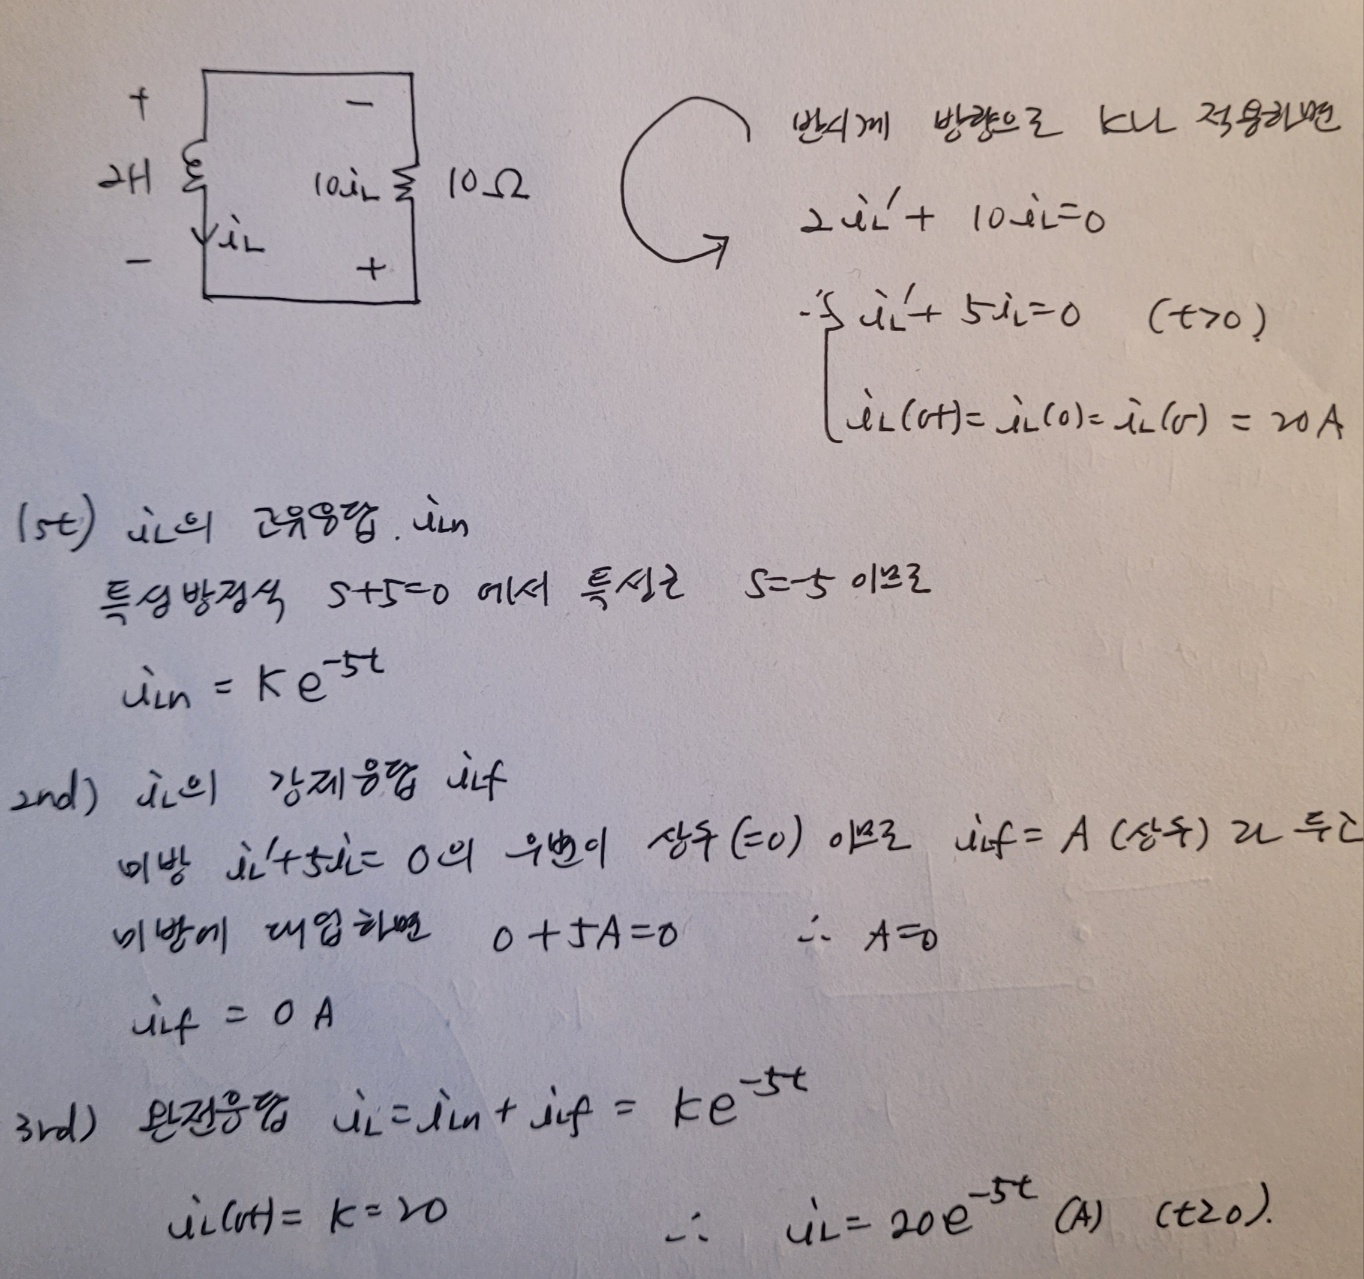 + −
2H 10iL 10Ω
iL
− +
반시계 방향으로 KVL 적용하면
2iL′ + 10iL = 0
∴ { iL′ + 5iL = 0 (t>0)
iL(0+) = iL(0) = iL(0-) = 20A
1st) iL의 고유응답 iLn
특성방정식 S+5=0 에서 특성근 S=-5 이므로
iLn = Ke^{-5t}
2nd) iL의 강제응답 iLf
미방 iL′+5iL = 0의 우변이 상수(=0) 이므로 iLf = A (상수) 라 두고
미방에 대입하면 0+5A=0 ∴ A=0
iLf = 0 A
3rd) 완전응답 iL = iLn + iLf = Ke^{-5t}
iL(0+) = K = 20 ∴ iL = 20e^{-5t} (A) (t≥0).